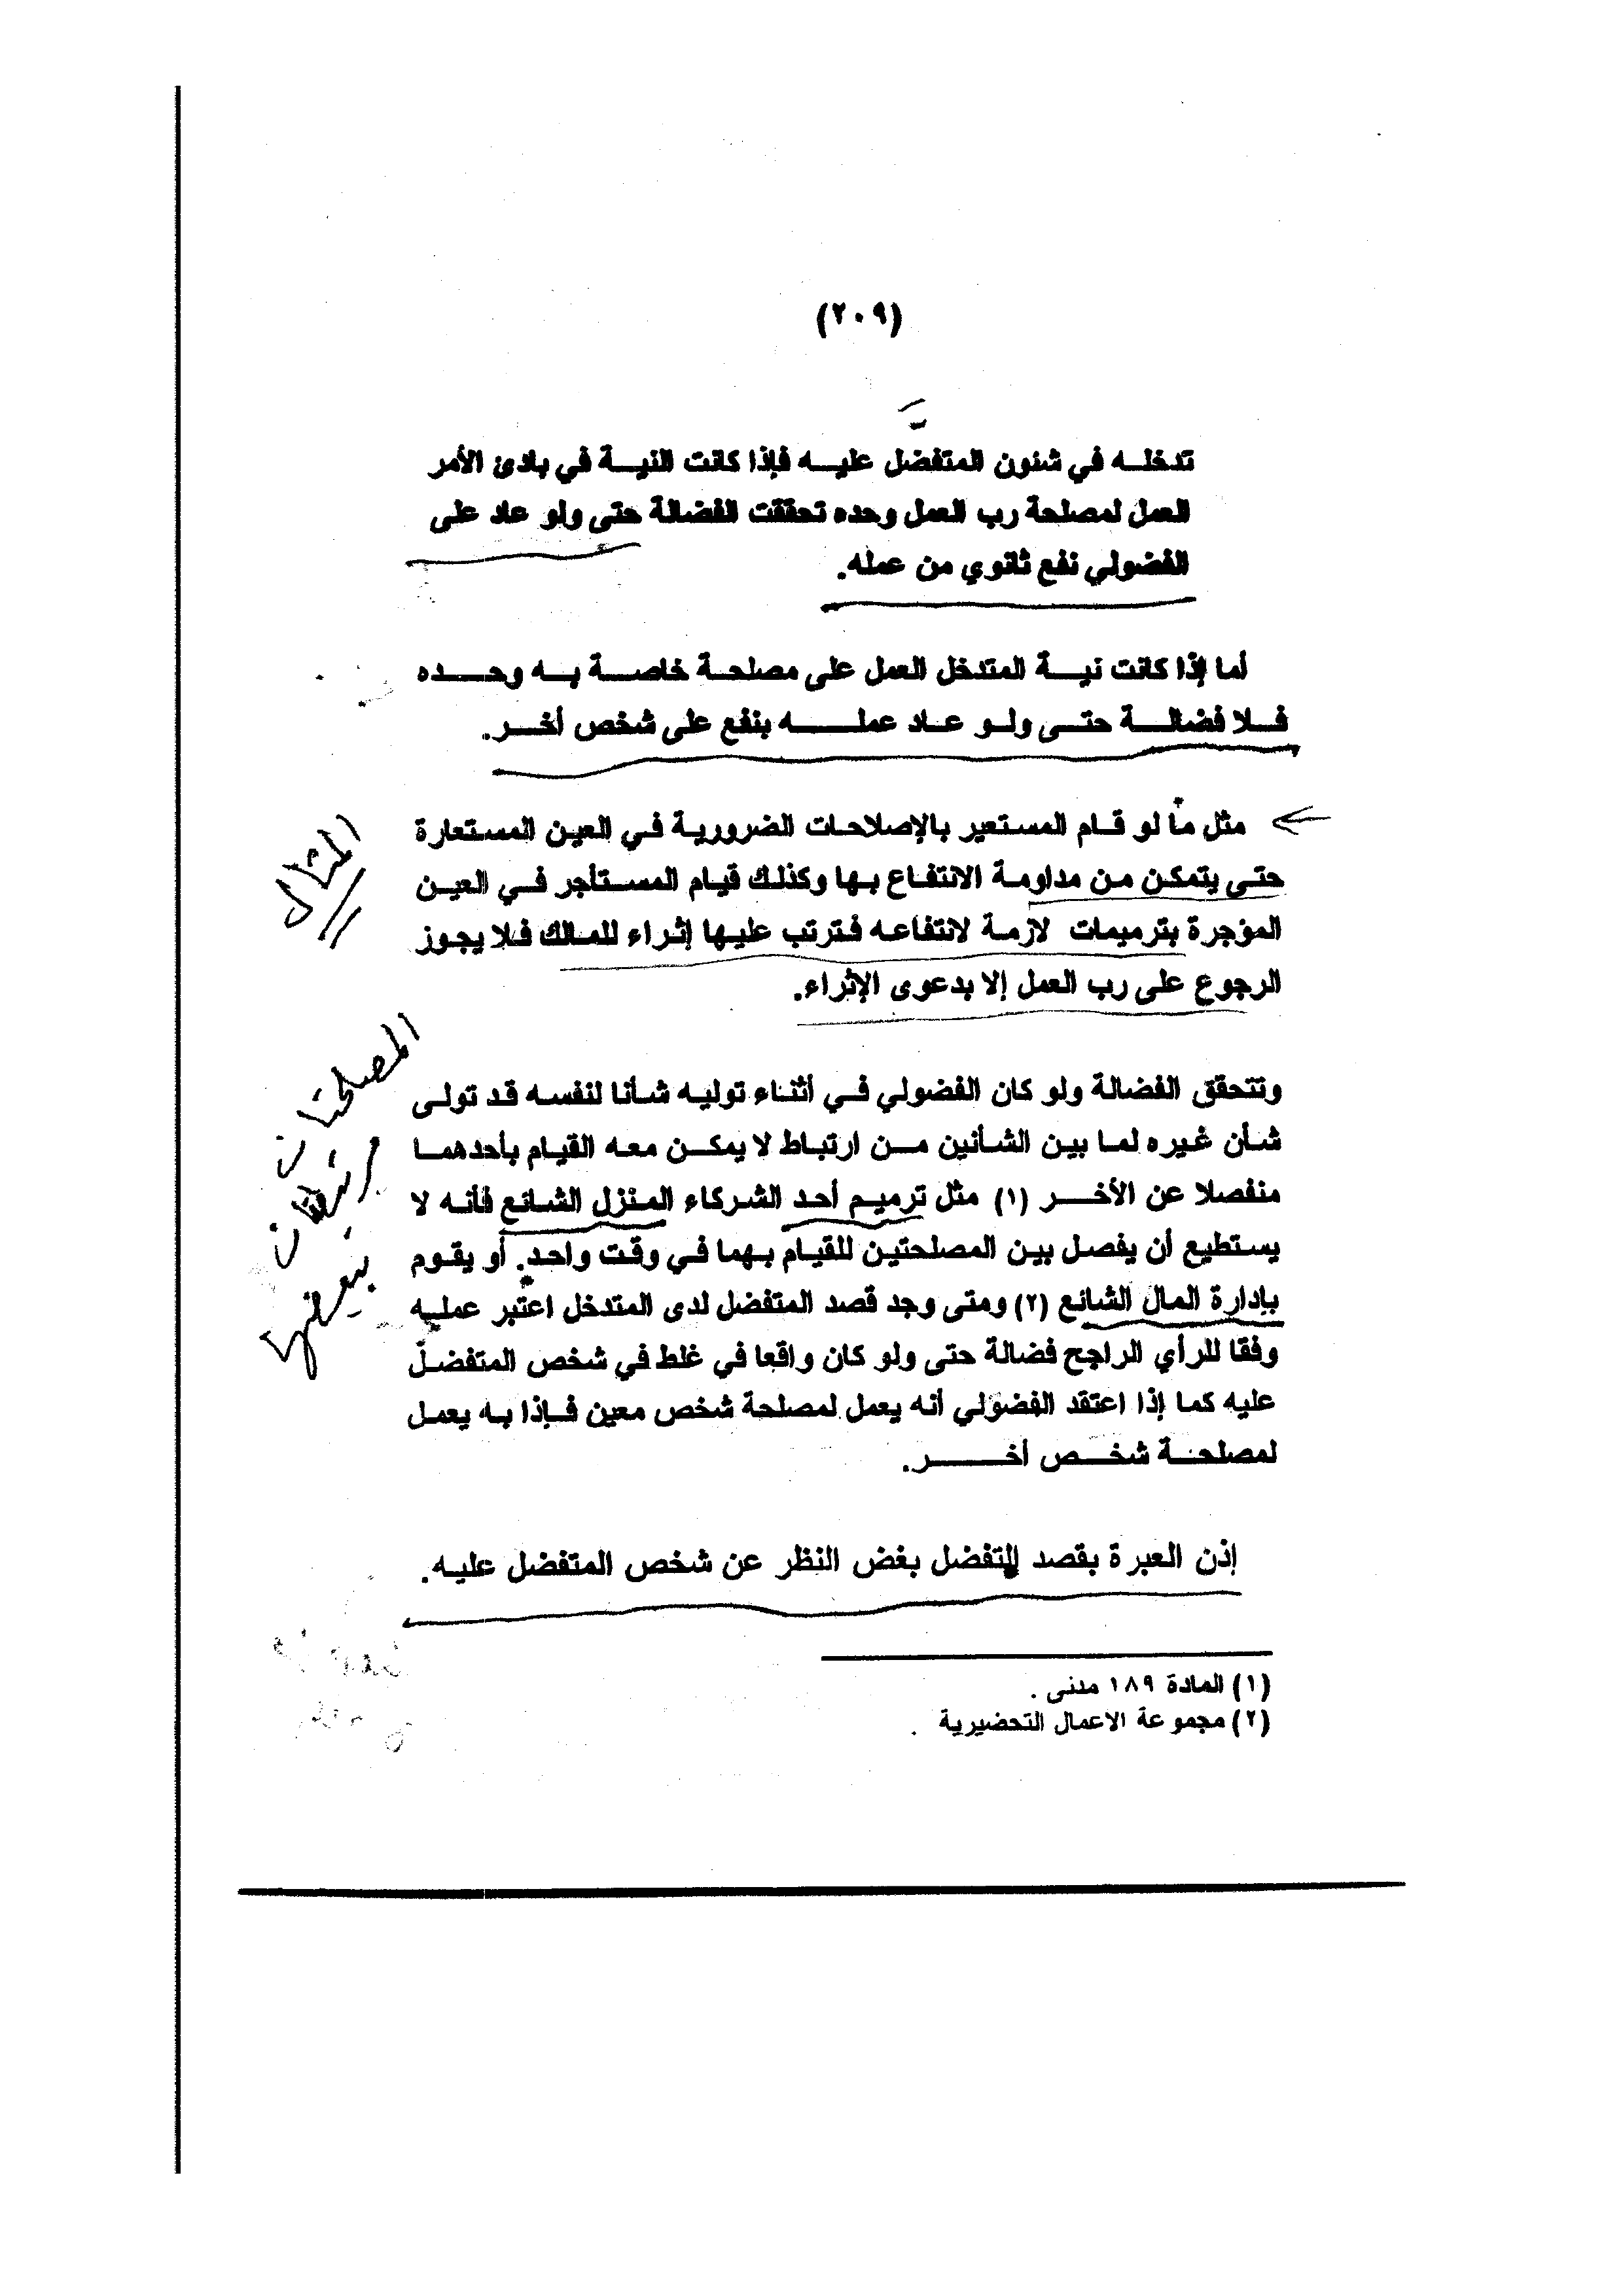 (٢٠٩)
تدخلـه في شئون المتفضل عليـه فإذا كانت النيـة في بادئ الأمر
العمل لمصلحة رب العمل وحده تحققت الفضالة حتى ولو عاد على
الفضولي نفع ثانوي من عمله.
أما إذا كانت نيـة المتدخل العمل على مصلحـة خاصـة بـه وحـده
فـلا فضالـة حتـى ولـو عـاد عملـه بنفع على شخص أخـر.
مثل ما لو قـام المستعير بالإصلاحات الضرورية في العين المستعارة
حتى يتمكن من مداومة الانتفاع بها وكذلك قيام المستأجر في العين
المؤجرة بترميمات لازمة لانتفاعه فترتب عليها إثراء للمالك فلا يجوز
الرجوع على رب العمل إلا بدعوى الإثراء.
المثال
وتتحقق الفضالة ولو كان الفضولي في أثناء توليه شأنا لنفسه قد تولى
شأن غيره لما بين الشأنين من ارتباط لا يمكن معه القيام بأحدهما
منفصلا عن الأخـر (١) مثل ترميم أحد الشركاء المنزل الشائع فأنه لا
يستطيع أن يفصل بين المصلحتين للقيام بهما في وقت واحد. أو يقوم
بإدارة المال الشائع (٢) ومتى وجد قصد المتفضل لدى المتدخل اعتبر عمليه
وفقا للرأي الراجح فضالة حتى ولو كان واقعا في غلط في شخص المتفضل
عليه كما إذا اعتقد الفضولي أنه يعمل لمصلحة شخص معين فإذا به يعمل
لمصلحـة شخـص أخـر.
المصلحتان
مرتبطتان
ببعضها
إذن العبرة بقصد التفضل بغض النظر عن شخص المتفضل عليـه.
(١) المادة ١٨٩ مدنى .
(٢) مجموعة الاعمال التحضيرية .